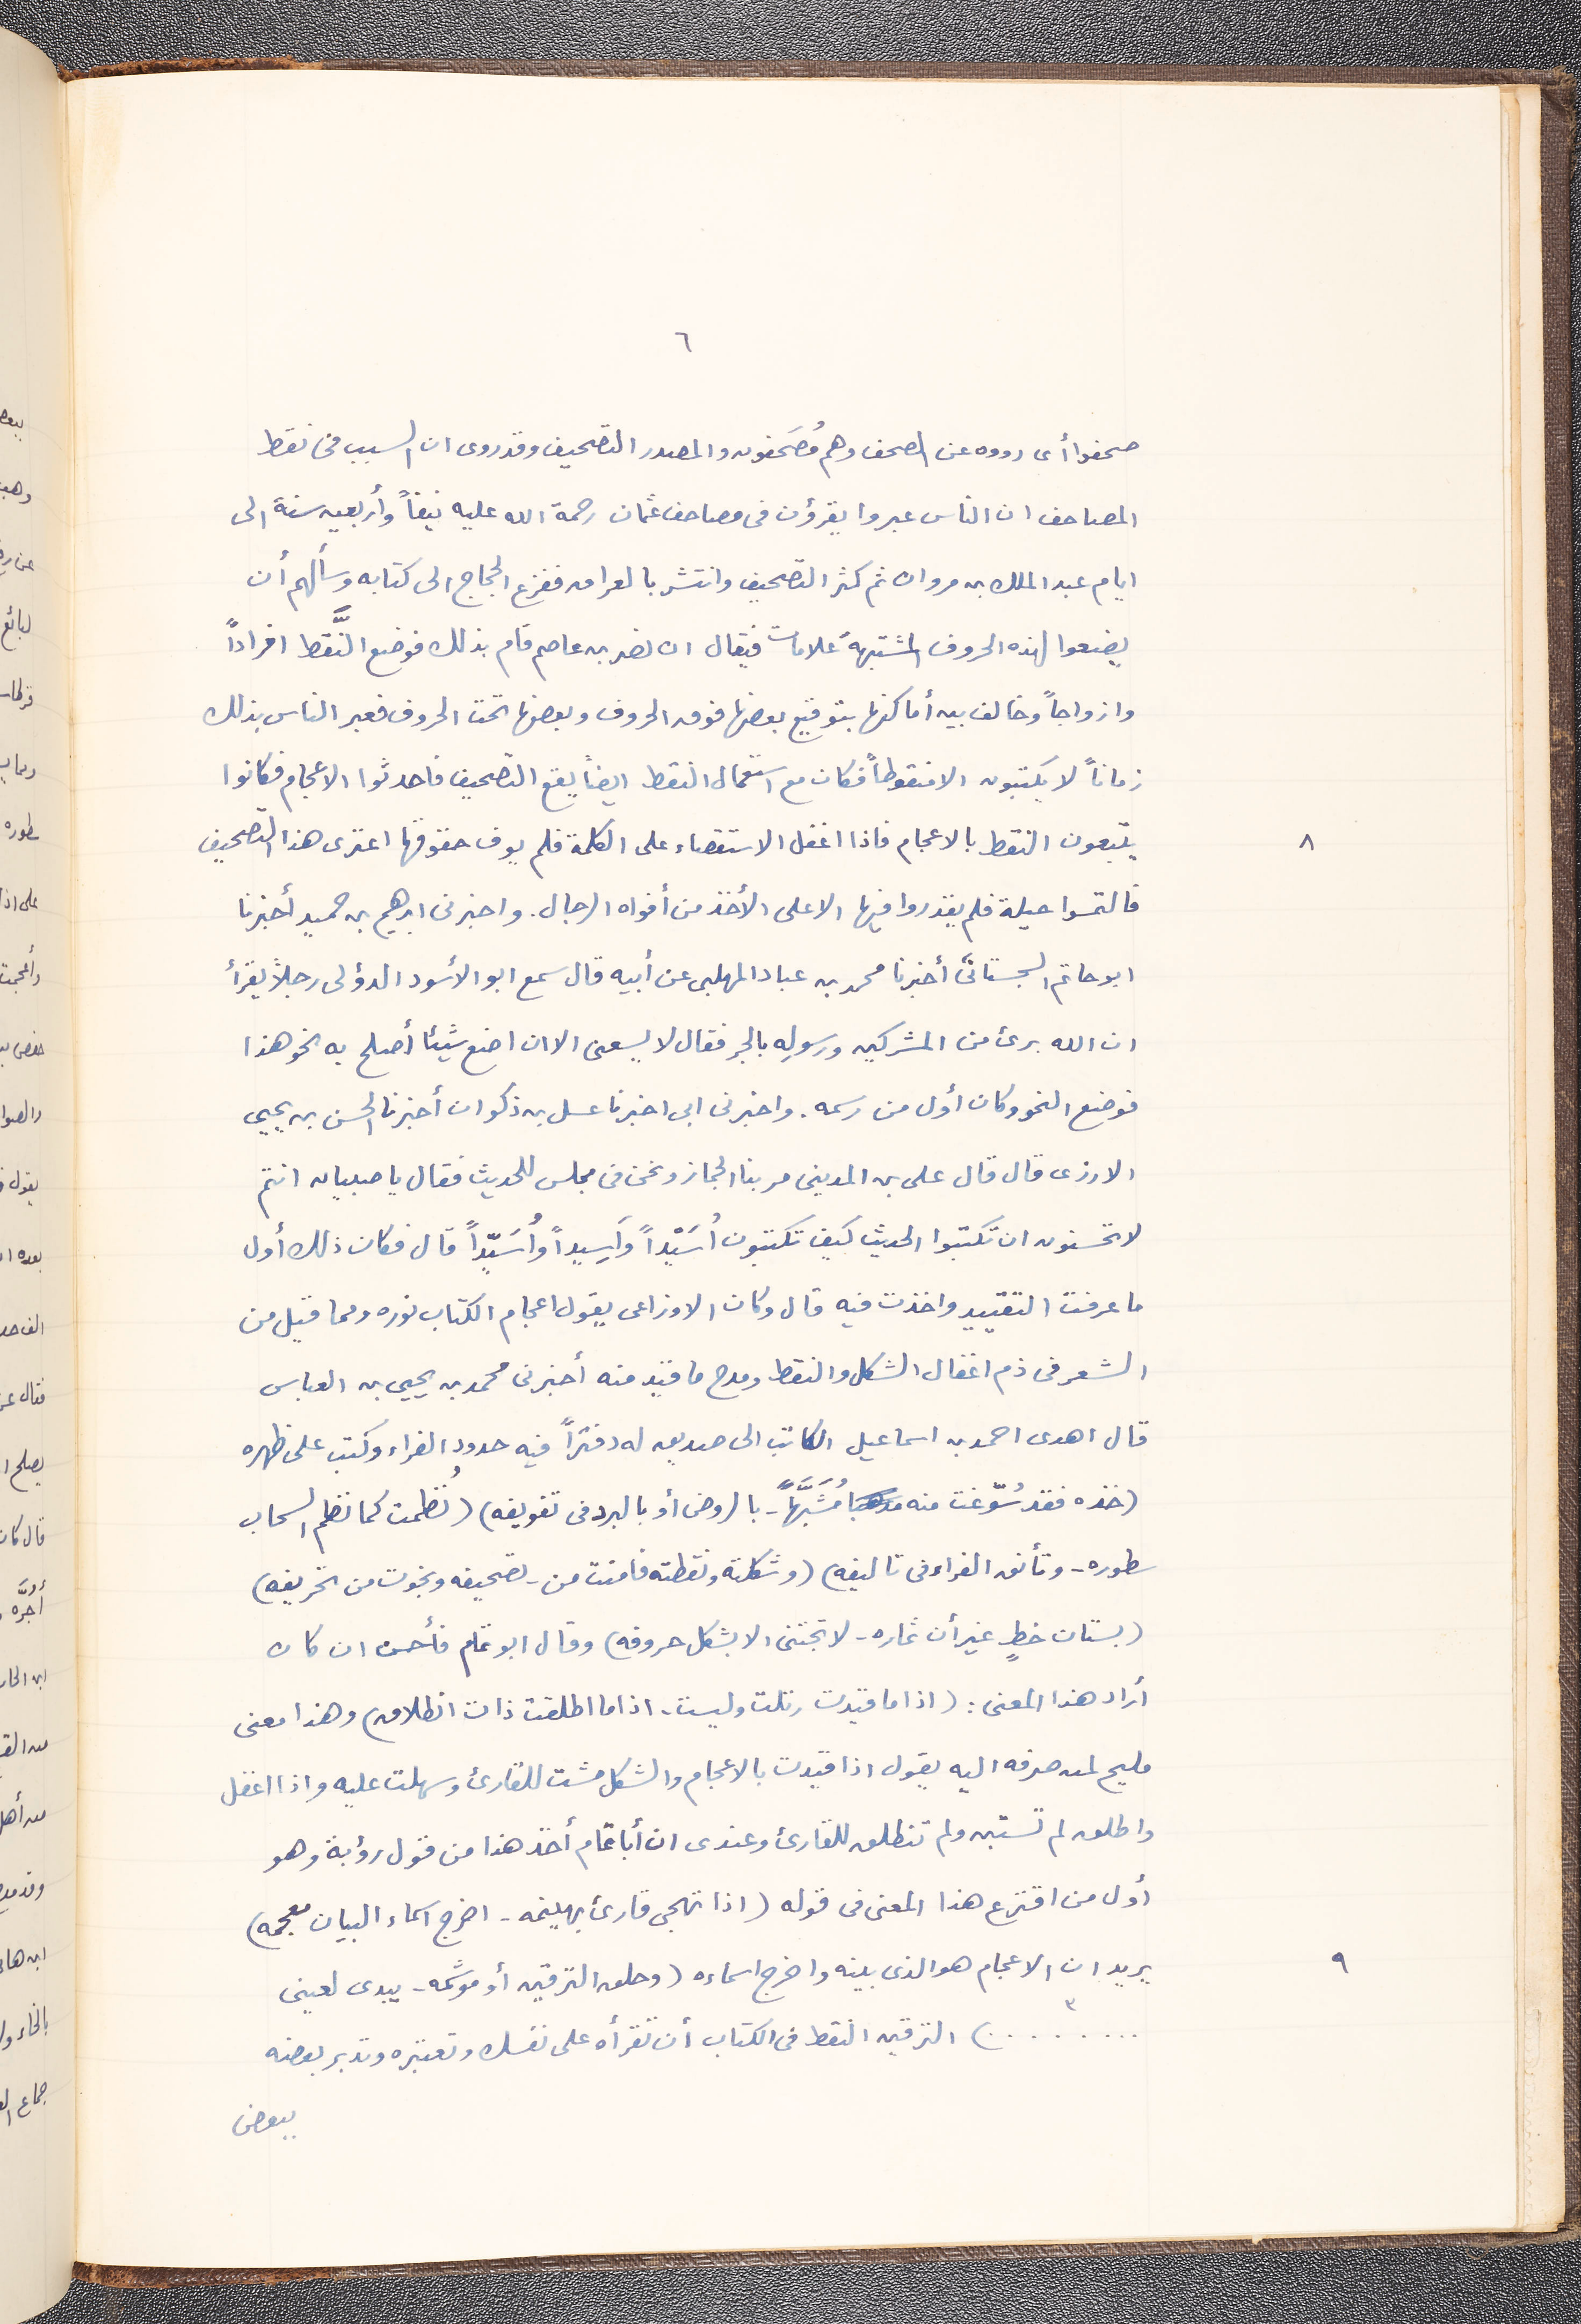 ٦
صحفوا أى رووه عن الصحف وهم مُصَحفون والمصدر التصحيف وقد روى ان السبب فى نقط
المصاحف ان الناس عبروا يقرؤن فى مصاحف عثمان رحمة الله عليه نيفاً وأربعين سنة الى
ايام عبد الملك بن مروان ثم كثر التصحيف وانتشر بالعراق ففزع الحجاج الى كتابه وسألهم أن
يضعوا لهذه الحروف المشتبهة علامات فيقال ان نصر بن عاصم قام بذلك فوضع النَّقط افراداً
وازواجاً وخالف بين أماكنها بتوقيع بعضها فوق الحروف وبعضها تحت الحروف فعبر الناس بذلك
زماناً لا يكتبون الا منقوطاً فكان مع استعمال النقط ايضاً يقع التصحيف فاحدثوا الاعجام فكانوا
يتبعون النقط بالاعجام فاذا اغفل الاستقصاء على الكلمة فلم يوف حقوقها اعترى هذا التصحيف
٨
فالتمسوا حيلة فلم يقدروا فيها الا على الأخذ من أفواه الرجال. واخبرنى ابرهيم بن حميد أخبرنا
ابو حاتم السجستانى أخبرنا محمد بن عباد المهلبى عن أبيه قال سمع ابو الأسود الدؤلى رجلاً يقرأ
ان الله برئ من المشركين ورسولِه بالجر فقال لا يسعنى الا ان اضع شيئا أصلح به نحو هذا
فوضع النحو وكان أول من رسمه. واخبرنى ابى اخبرنا عسل بن ذكوان أخبرنا الحسن بن يحيى
الارزى قال قال على بن المدينى مر بنا الجماز ونحن فى مجلس للحديث فقال يا صبيان انتم
لا تحسنون ان تكتبوا الحديث كيف تكتبون أُسَيْداً وأَسِيداً وأُسَيّداً قال فكان ذلك أول
ما عرفت التقييد واخذت فيه قال وكان الاوزاعى يقول اعجام الكتاب نوره ومما قيل من
الشعر فى ذم اغفال الشكل والنقط ومدح ما قيد منه أخبرنى محمد بن يحيى بن العباس
قال اهدى احمد بن اسماعيل الكاتب الى صديق له دفتراً فيه حدود الفراء وكتب على ظهره
(خذه فقد سُوّغت منه مُشَبَّهاً - بالروض أو بالبرد فى تفويفه) (نُظمت كما نظم السحاب
سطوره - وتأنق الفراء فى تاليفه) (وشكلته ونقطته فامنت من - تصحيفه ونجوت من تحريفه)
(بستان خطٍ غير أن ثماره - لا تجتنى الا بشكل حروفه) وقال ابو تمام فأحسن ان كان
أراد هذا المعنى: (اذا ما قيدت رتلت وليست - اذا ما اطلقت ذات انطلاق) وهذا معنى
مليح لمن صرفه اليه يقول اذا قيّدت بالاعجام والشكل مشت للقارئ وسهلت عليه واذا اغفل
واطلق لم تستبن ولم تنطلق للقارئ وعندى ان أبا تمام أخذ هذا من قول رؤبة وهو
أول من اقترع هذا المعنى فى قوله (اذا تهجى قارئ بهينمه - اخرج اسماء البيان معجمه)
يريد ان الاعجام هو الذى بينه واخرج اسماءه (وحلق الترقين أو موشمه - يبدى لعينى
٩
.........) ٣ الترقين النقط فى الكتاب أن تقرأه على نفسك وتعتبره وتدبر بعضه
ببعض